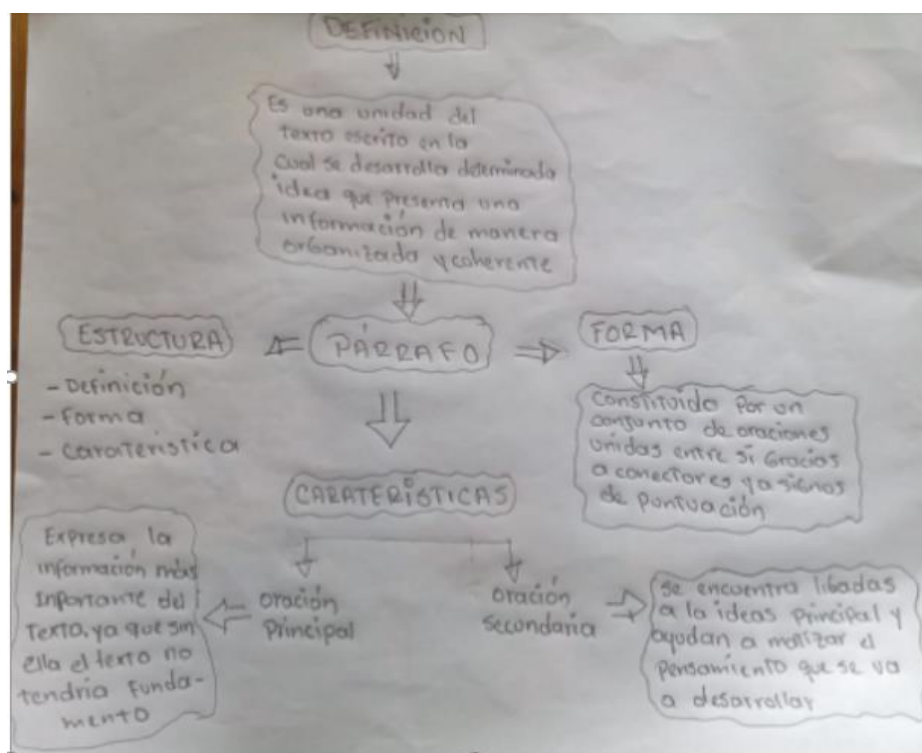 DEFINICIÓN
Es una unidad del
texto escrito en la
cual se desarrolla determinada
idea que presenta una
información de manera
organizada y coherente
ESTRUCTURA
PÁRRAFO
FORMA
- Definición
- Forma
- Caraterística
Constituido por un
conjunto de oraciones
unidas entre sí Gracias
a conectores y a signos
de puntuación
CARATERÍSTICAS
Expresa la
información más
importante del
texto, ya que sin
ella el texto no
tendría funda-
mento
oración
Principal
oración
secundaria
se encuentra ligadas
a la ideas principal y
ayudan a matizar el
pensamiento que se va
a desarrollar